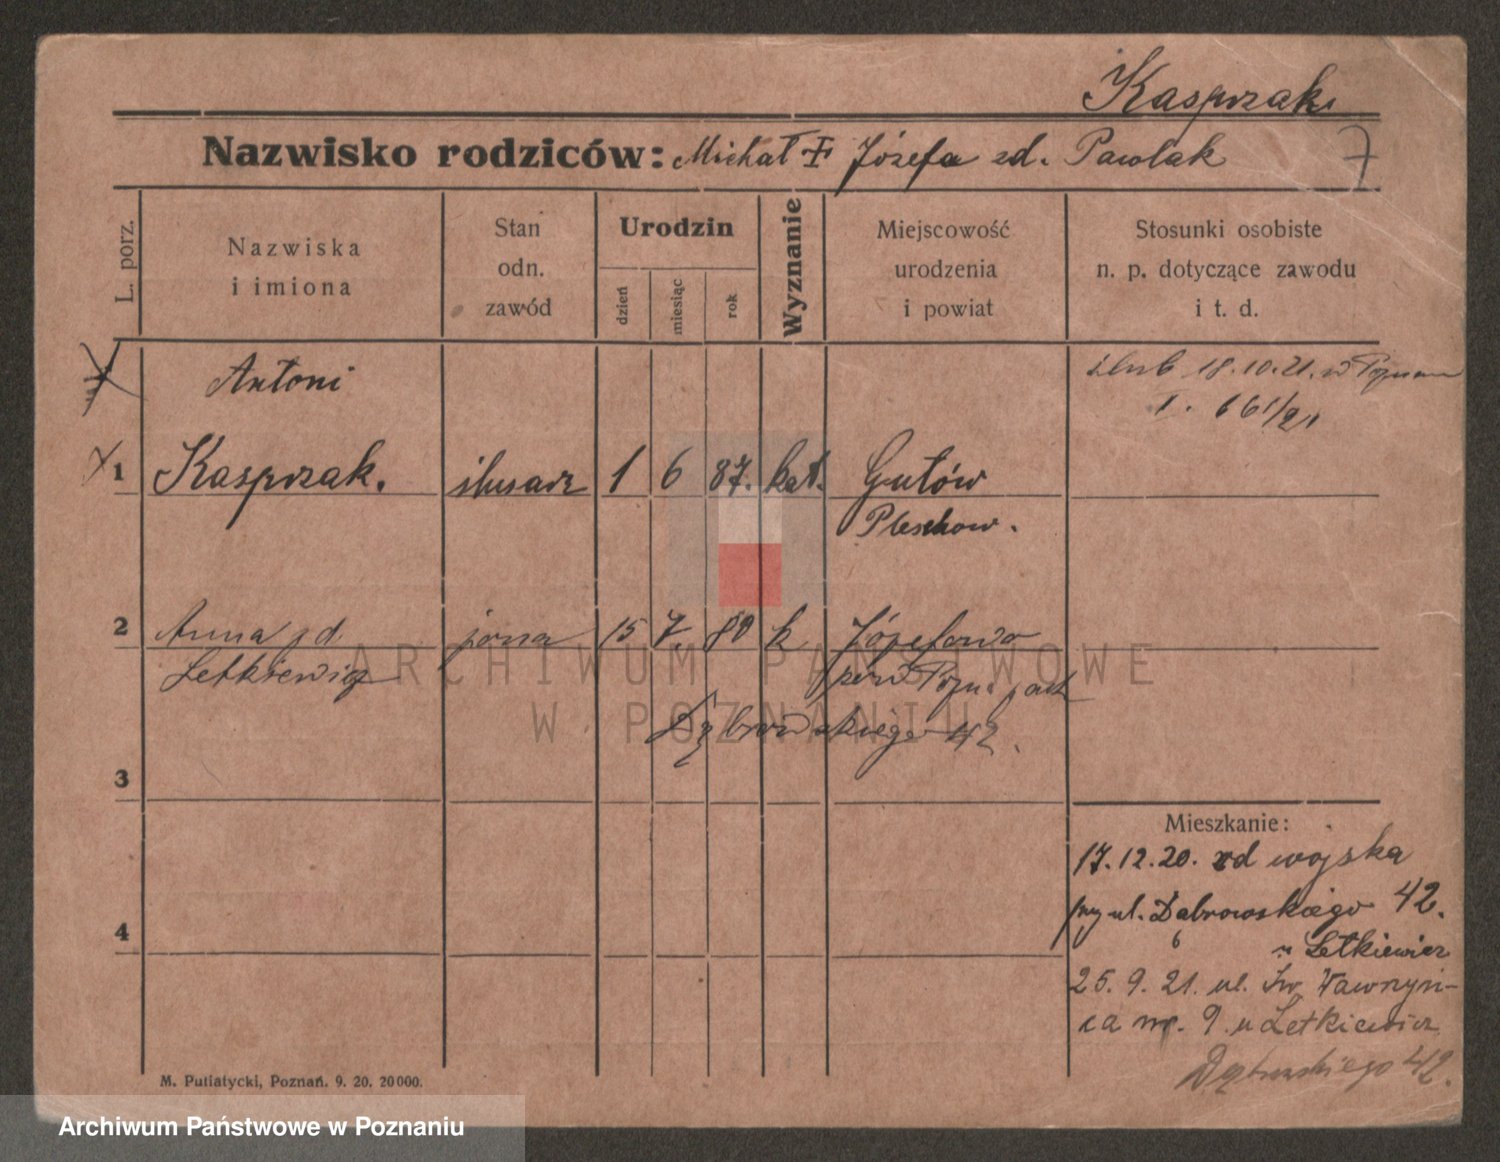 Kasprzak
Nazwisko rodziców: Michał Józefa zd. Pawlak 7
L. porz.
Nazwiska
i imiona
Stan
odn.
zawód
Urodzin
dzień
miesiąc
rok
Wyznanie
Miejscowość
urodzenia
i powiat
Stosunki osobiste
n. p. dotyczące zawodu
i t. d.
Antoni
ślub 18.10.21. w
I. 661/21
1 Kasprzak. ślusarz 1 6 87. kat. Gutów
Pleschow.
2 Anna zd żona 15 7. 80 k Józefowo
Letkiewicz
Dąbrowskiego 42.
3
4
Mieszkanie:
17.12.20. od wojska
przy ul. Dąbrowskiego 42.
u Letkiewicz
25. 9. 21. ul. Św. Wawrzyń-
ca nr. 9 u Letkiewicz
Dąbrowskiego 42.
M. Putiatycki, Poznań. 9. 20. 20000.
ARCHIWUM PAŃSTWOWE
W POZNANIU
Archiwum Państwowe w Poznaniu